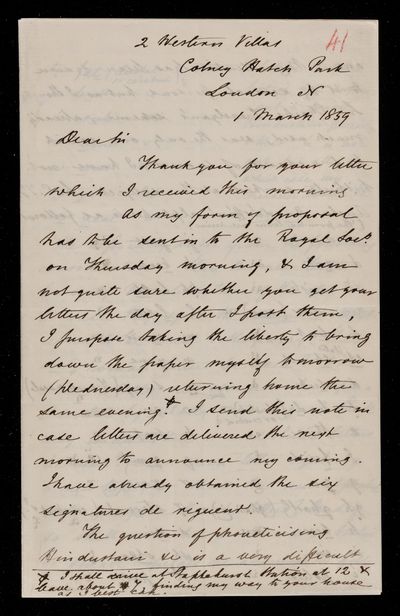 41
2 Western Villas
Colney Hatch Park
London N
1 March 1859
Dear Sir
Thank you for your letter
which I received this morning
As my form of proposal
has to be sent in to the Royal Socy.
on Thursday morning, & I am
not quite sure whether you get your
letters the day after I post them,
I purpose taking the liberty to bring
down the paper myself tomorrow
(Wednesday) returning home the
same evening.* I send this note in
case letters are delivered the next
morning to announce my coming.
I have already obtained the six
signatures de rigueur.
The question of phoneticising
Hindustani &c is a very difficult
* I shall arrive at Staplehurst Station at 12 &
leave about 7, finding my way to your house
as I best can.